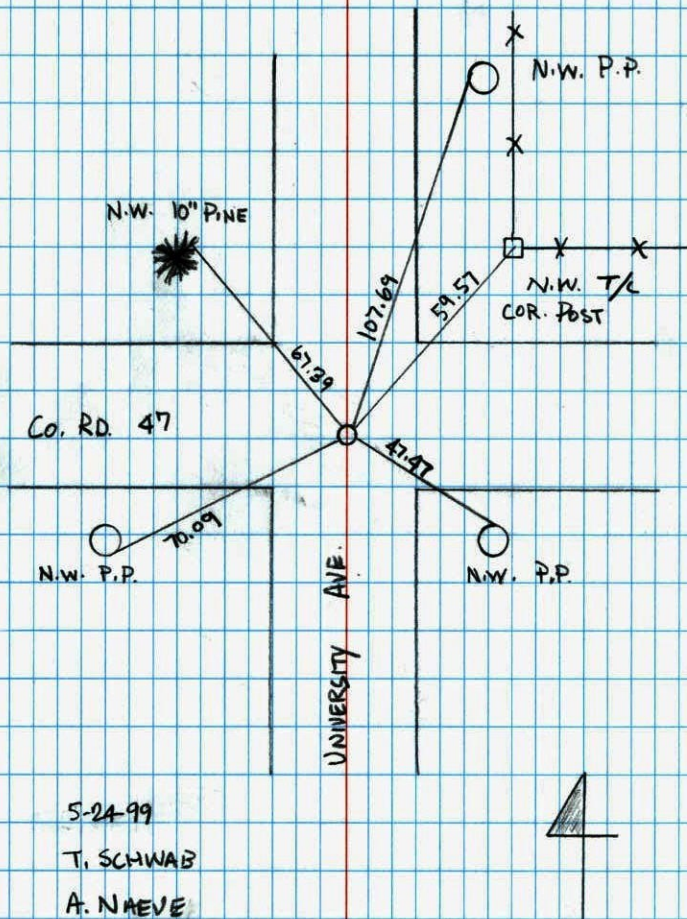 N.W. P.P.
N.W. 10" PINE
N.W. T/C
COR. POST
107.69
59.57
67.39
CO. RD. 47
47.47
70.09
N.W. P.P.
N.W. P.P.
UNIVERSITY AVE.
5-24-99
T. SCHWAB
A. NAEVE